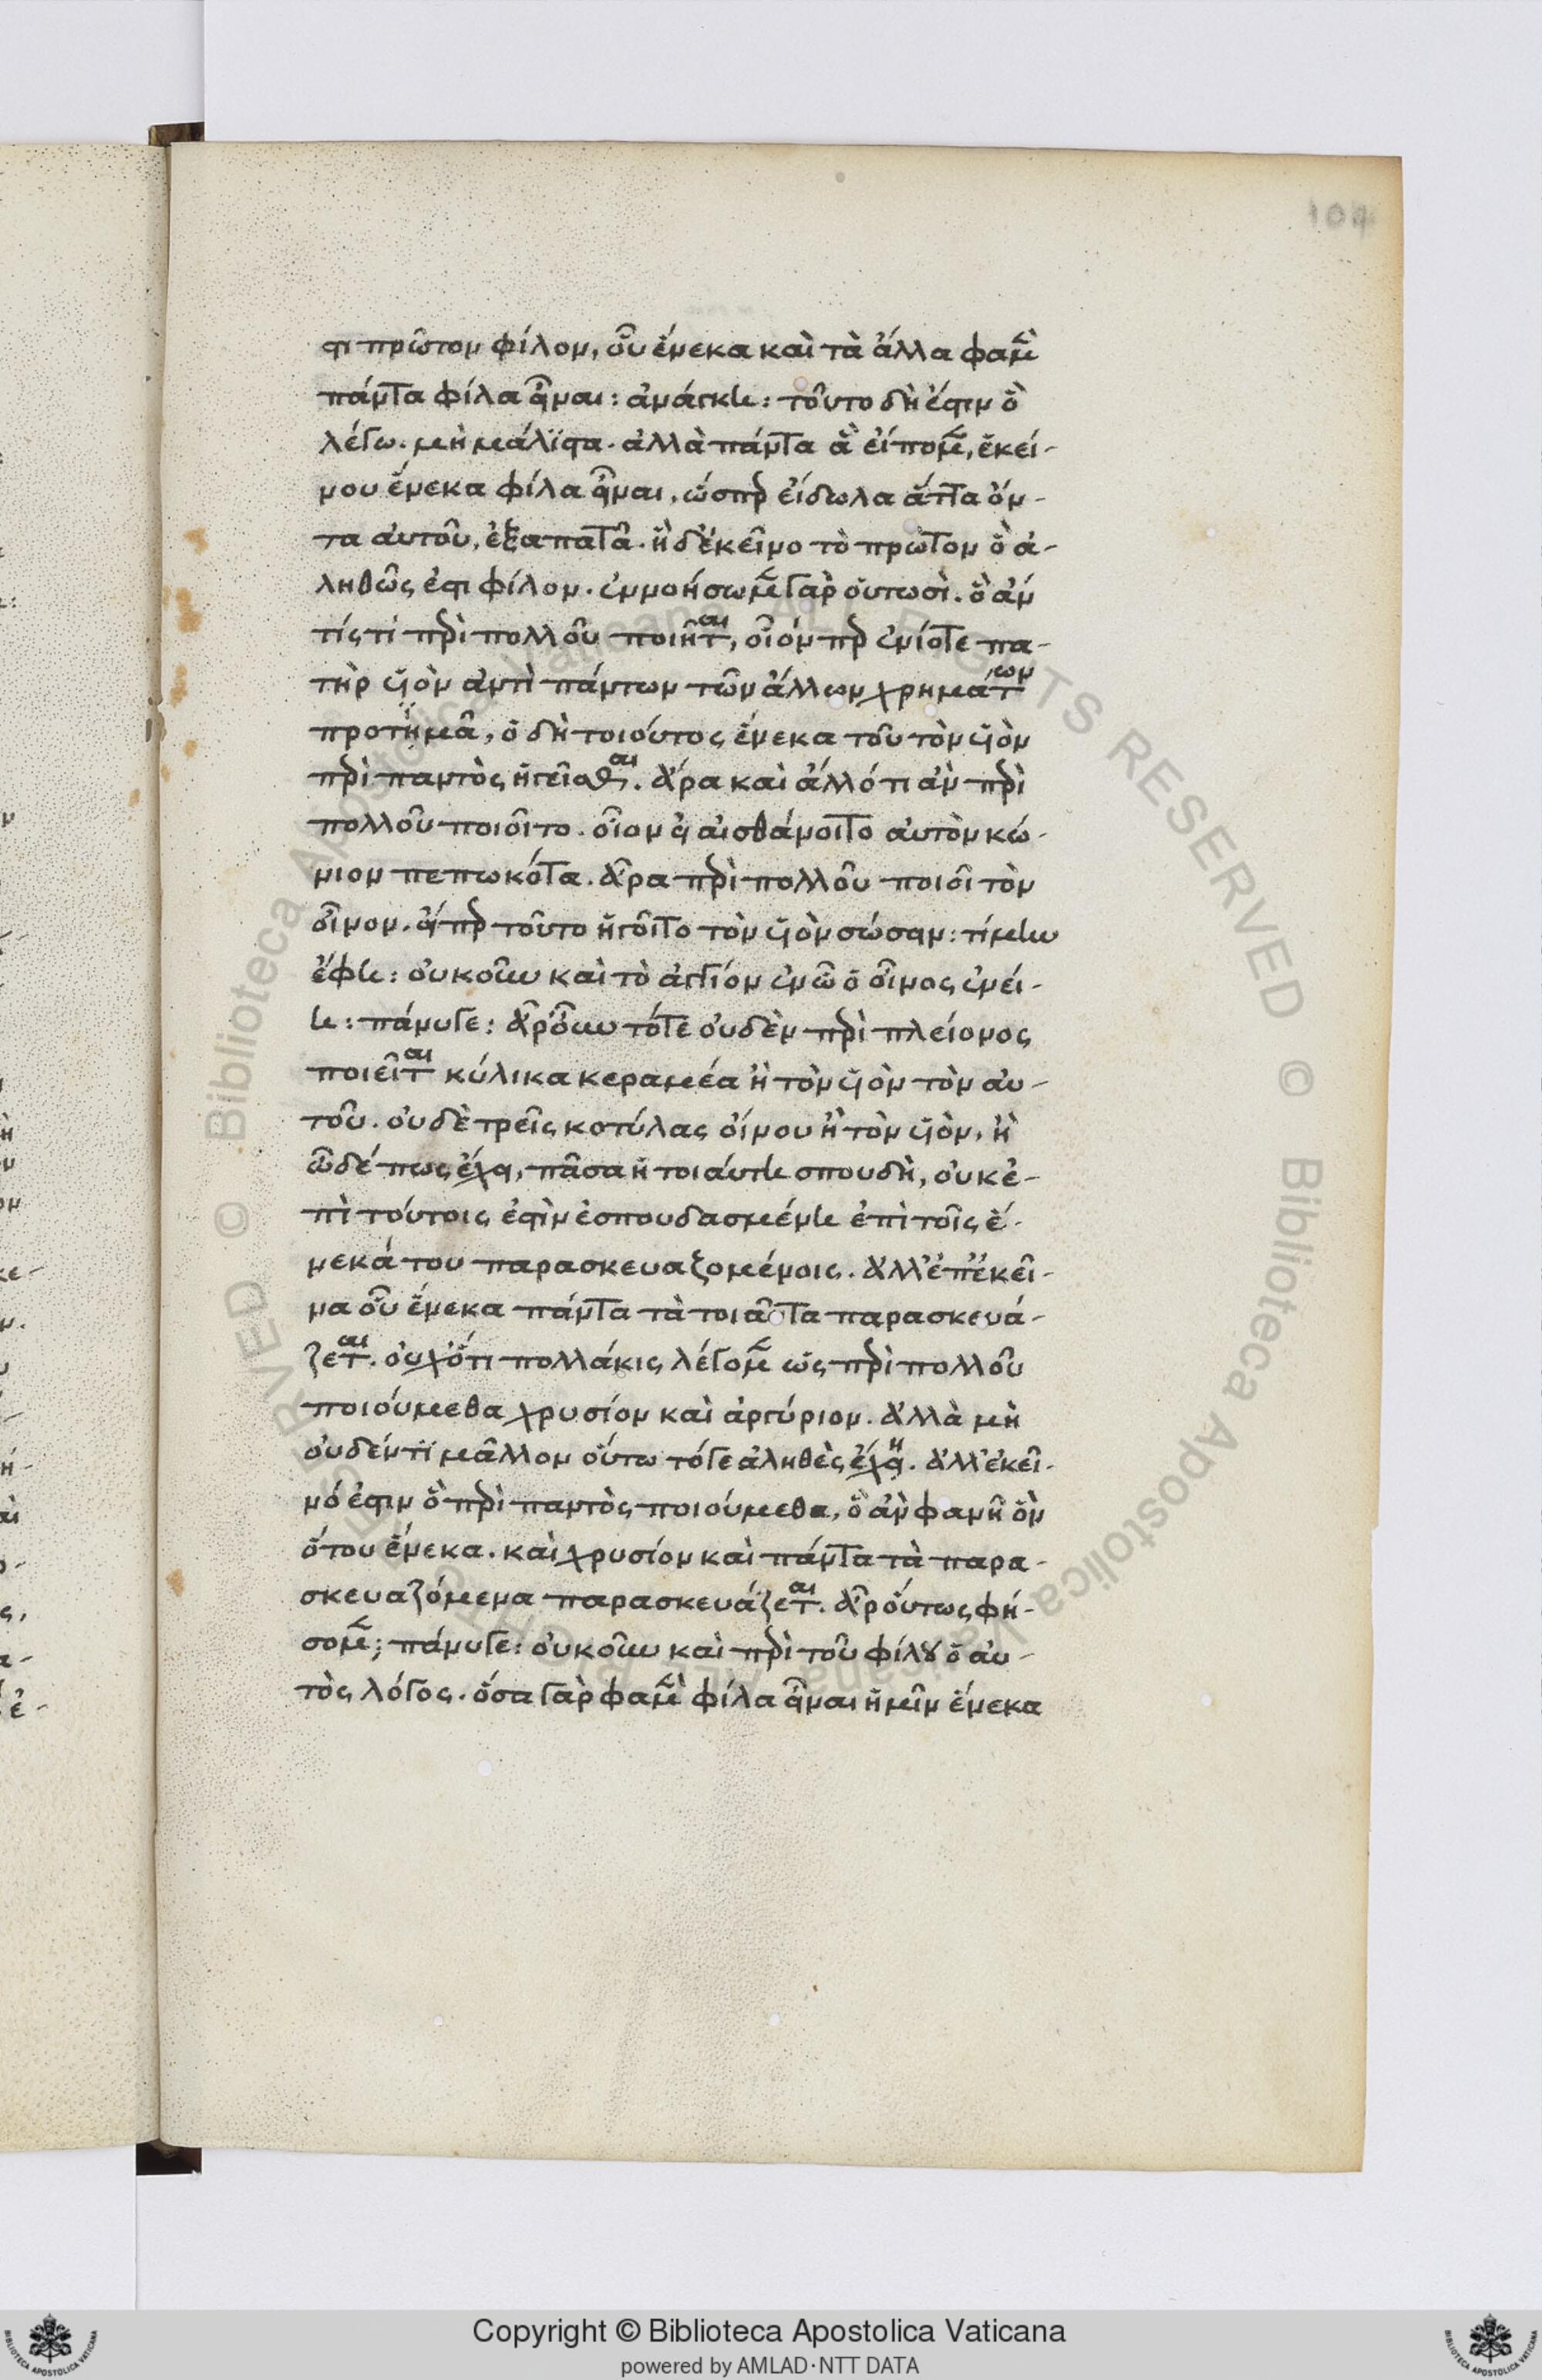 104
στι πρῶτον φίλον, οὗ ἕνεκα καὶ τὰ ἄλλα φαμὲν
πάντα φίλα εἶναι: ἀνάγκη: τοῦτο δὴ ἔστιν ὃ
λέγω. μὴ μάλϊστα. ἀλλὰ πάντα ἃ εἴπομεν, ἐκεί-
νου ἕνεκα φίλα εἶναι, ὥσπερ εἴδωλα ἄττα ὄν-
τα αὐτοῦ, ἐξαπατᾶ. ἢ δ' ἐκεῖνο τὸ πρῶτον ὃ ἀ-
ληθῶς ἐστι φίλον. ἐννοήσωμεν γὰρ οὑτωσὶ. ὃ ἄν
τίς τί περὶ πολλοῦ ποιῆται, οἷόν περ ἐνίοτε πα-
τὴρ υἱὸν ἀντὶ πάντων τῶν ἄλλων χρημάτων
προτιμᾶ, ὁ δὴ τοιούτος ἕνεκα τοῦ τὸν υἱὸν
περὶ παντὸς ἡγεῖσθαι. ἄρα καὶ ἄλλό τι ἂν περὶ
πολλοῦ ποιοῖτο. οἷον εἰ αἰσθάνοιτο αὐτὸν κώ-
νιον πεπωκότα. ἆρα περὶ πολλοῦ ποιοῖ τὸν
οἶνον. εἴπερ τοῦτο ἡγοῖτο τὸν υἱὸν σώσειν: τί μὴν
ἔφη: οὐκοῦν καὶ τὸ ἀγγεῖον ἐν ᾧ ὁ οἶνος ἐνεί-
η: πάνυ γε: ἆρ' οὖν τότε οὐδὲν περὶ πλείονος
ποιεῖται κύλικα κεραμέα ἢ τὸν υἱὸν τὸν αὐ-
τοῦ. οὐδὲ τρεῖς κοτύλας οἴνου ἢ τὸν υἱὸν, ἢ
ὧδέ πως ἔχει, πᾶσα ἡ τοιαύτη σπουδὴ, οὐκ ἐ-
πὶ τούτοις ἐστὶν ἐσπουδασμένη ἐπὶ τοῖς ἕ-
νεκά του παρασκευαζομένοις. ἀλλ' ἐπ' ἐκεῖ-
να οὗ ἕνεκα πάντα τὰ τοιαῦτα παρασκευά-
ζεται. οὐχ ὅτι πολλάκις λέγομεν ὡς περὶ πολλοῦ
ποιούμεθα χρυσίον καὶ ἀργύριον. ἀλλὰ μὴ
οὐδέν τϊ μᾶλλον οὕτω τό γε ἀληθὲς ἔχῃ. ἀλλ' ἐκεῖ-
νό ἐστιν ὃ περὶ παντὸς ποιούμεθα, ὃ ἂν φανῆ ὂν
ὅτου ἕνεκα. καὶ χρυσίον καὶ πάντα τὰ παρα-
σκευαζόμενα παρασκευάζεται. ἆρ' οὕτως φή-
σομεν; πάνυ γε: οὐκοῦν καὶ περὶ τοῦ φίλου ὁ αὐ-
τὸς λόγος. ὅσα γὰρ φαμὲν φίλα εἶναι ἡμῖν ἕνεκα
Copyright © Biblioteca Apostolica Vaticana
powered by AMLAD·NTT DATA